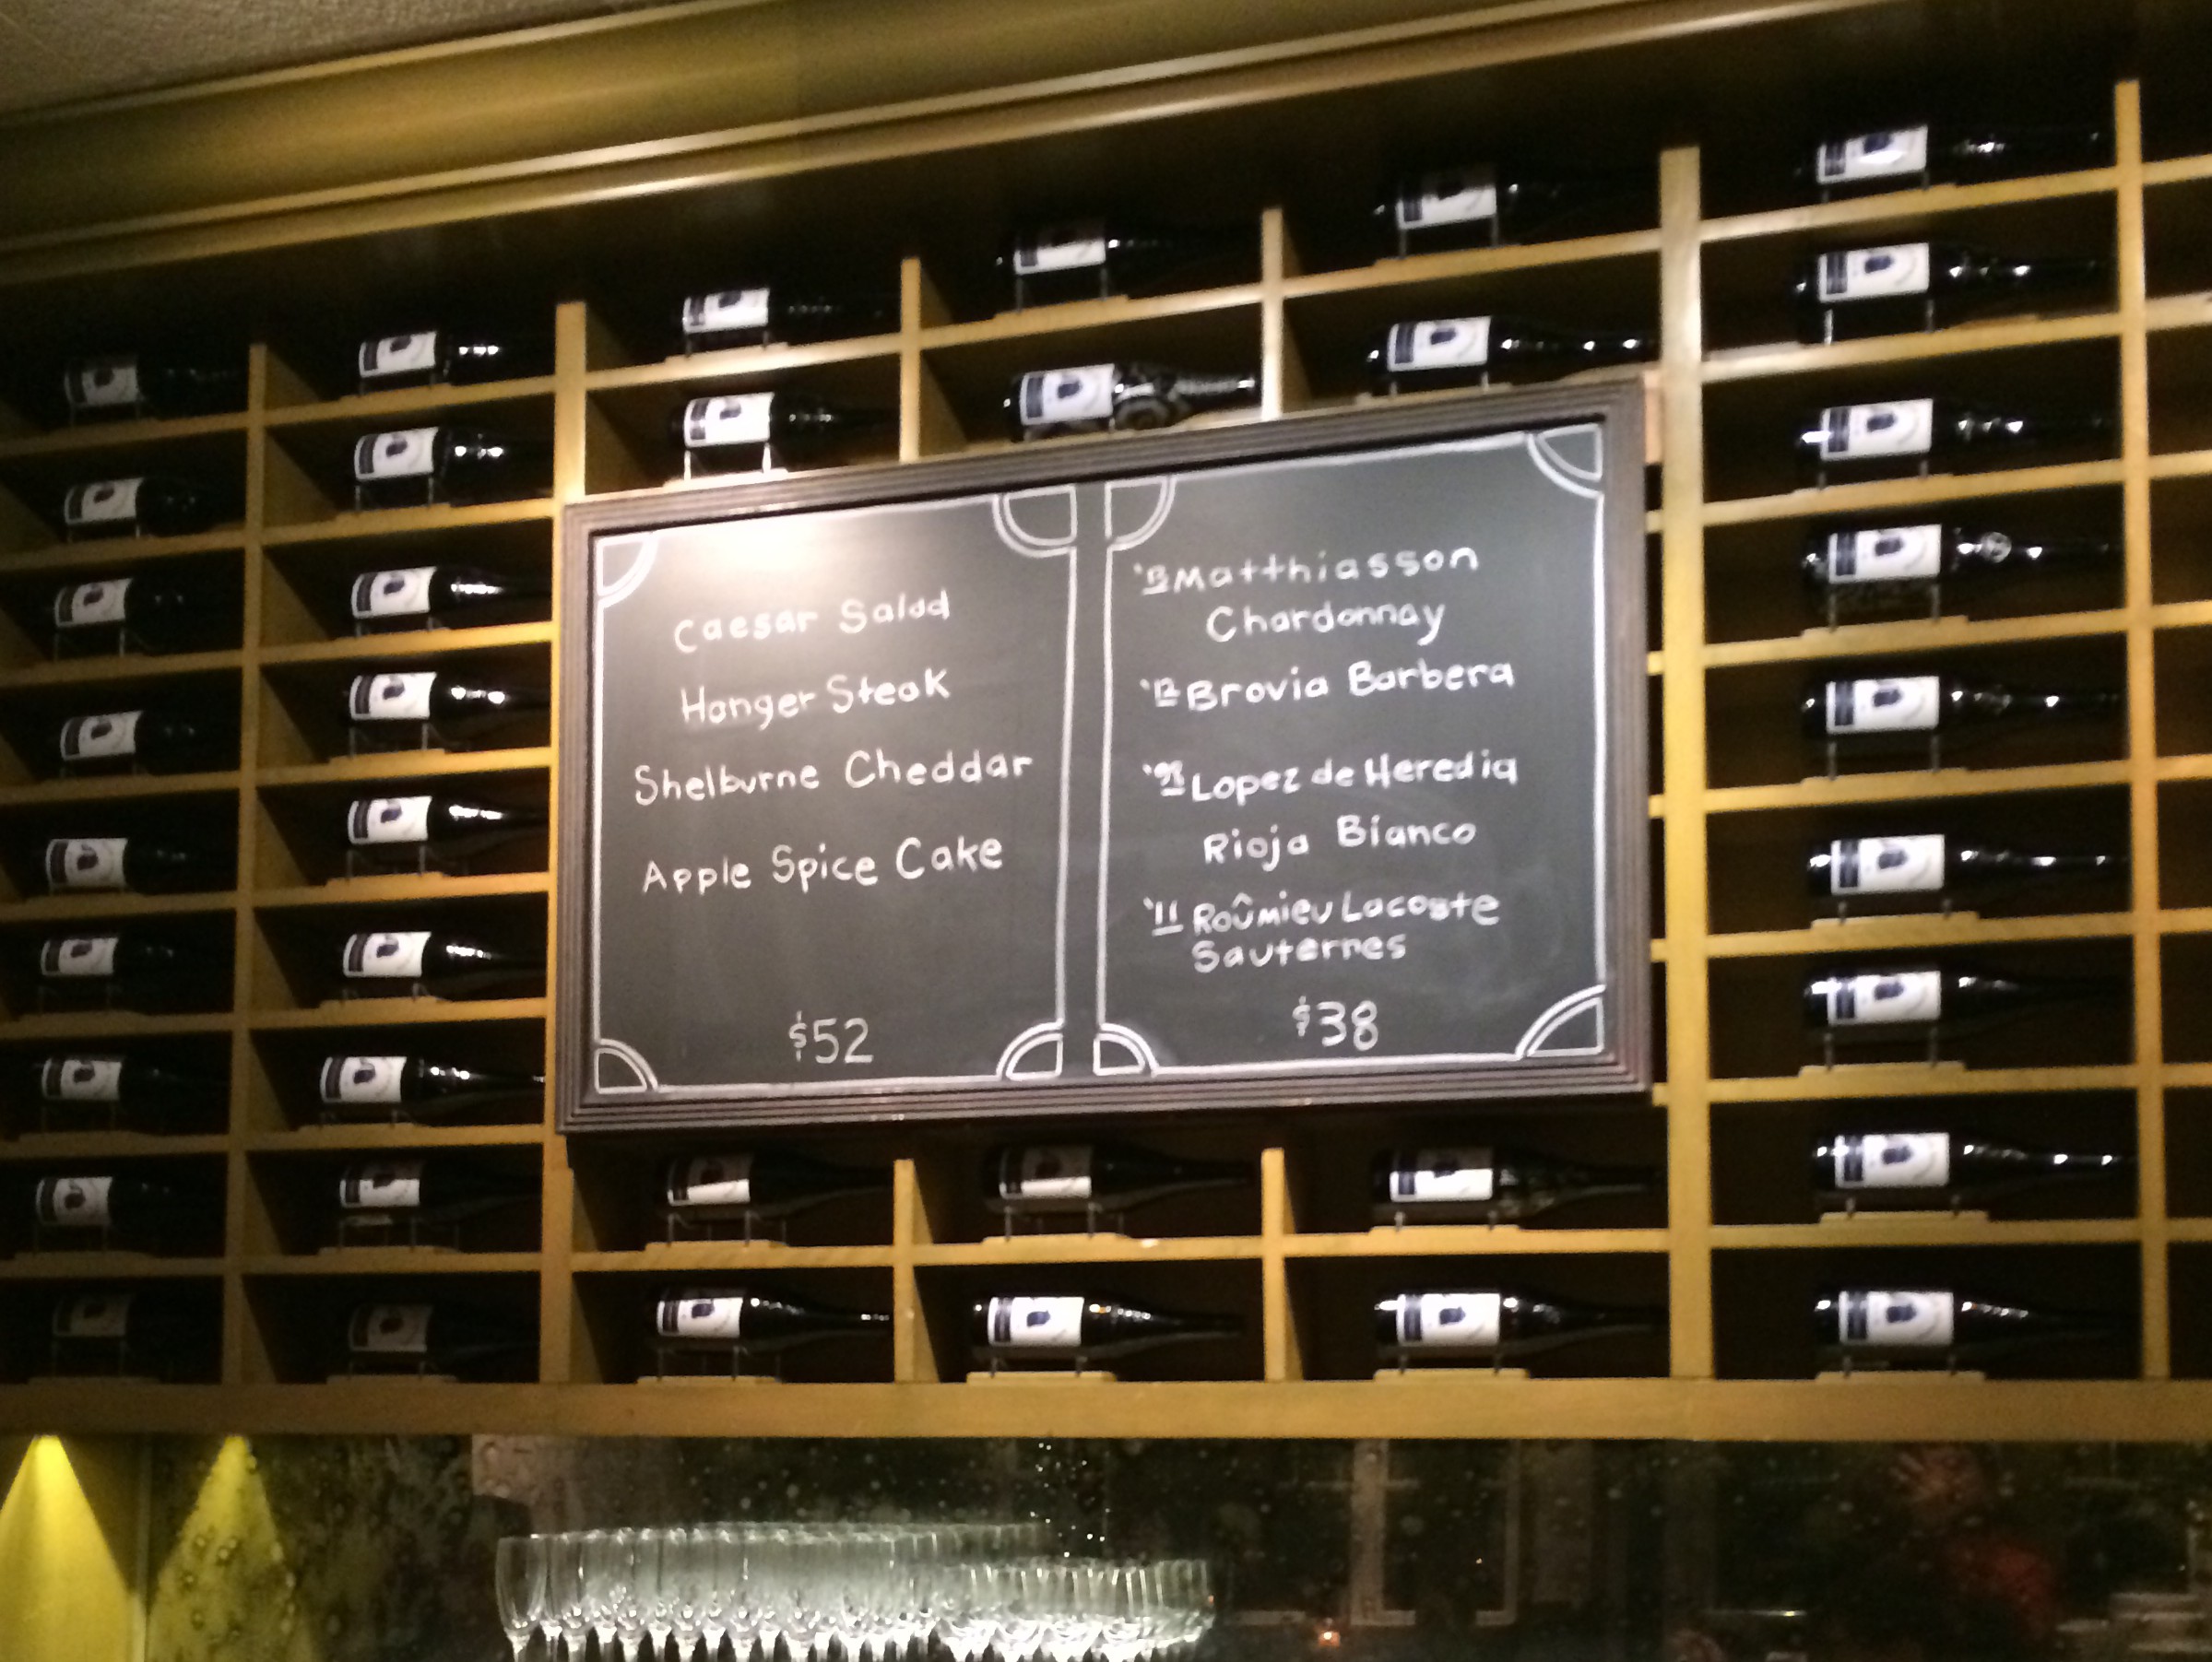 Caesar Salad
Hanger Steak
Shelburne Cheddar
Apple Spice Cake
$52
'13 Matthiasson
Chardonnay
'12 Brovia Barbera
Lopez de Heredia
Rioja Blanco
'11 Roûmieu Lacoste
Sauternes
$38